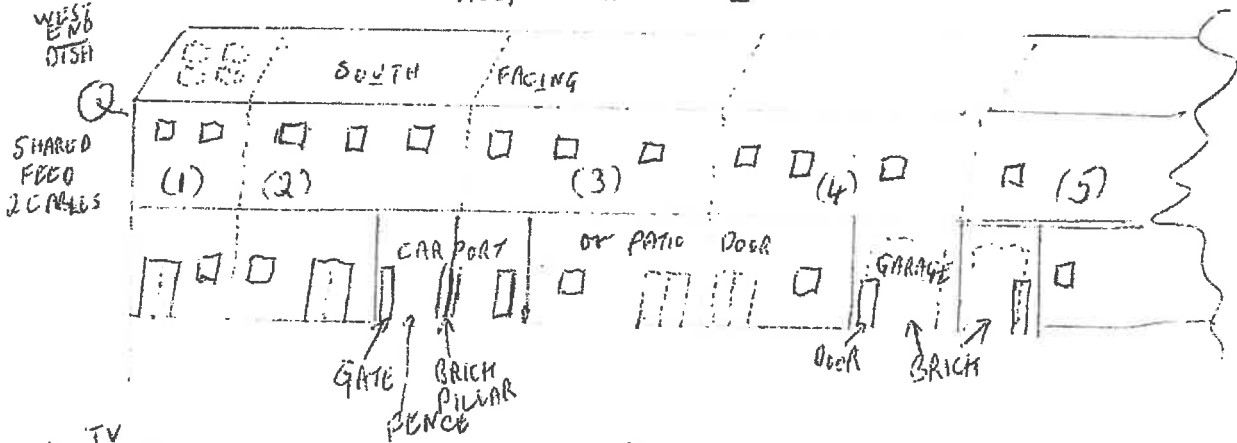 WEST
END
DISH
SOUTH FACING
SHARED
FEED
2 CABLES
(1) (2) (3) (4) (5)
CAR PORT OR PATIO DOOR
GARAGE
GATE
BRICH
PILLAR
FENCE
DOOR
BRICH
TV